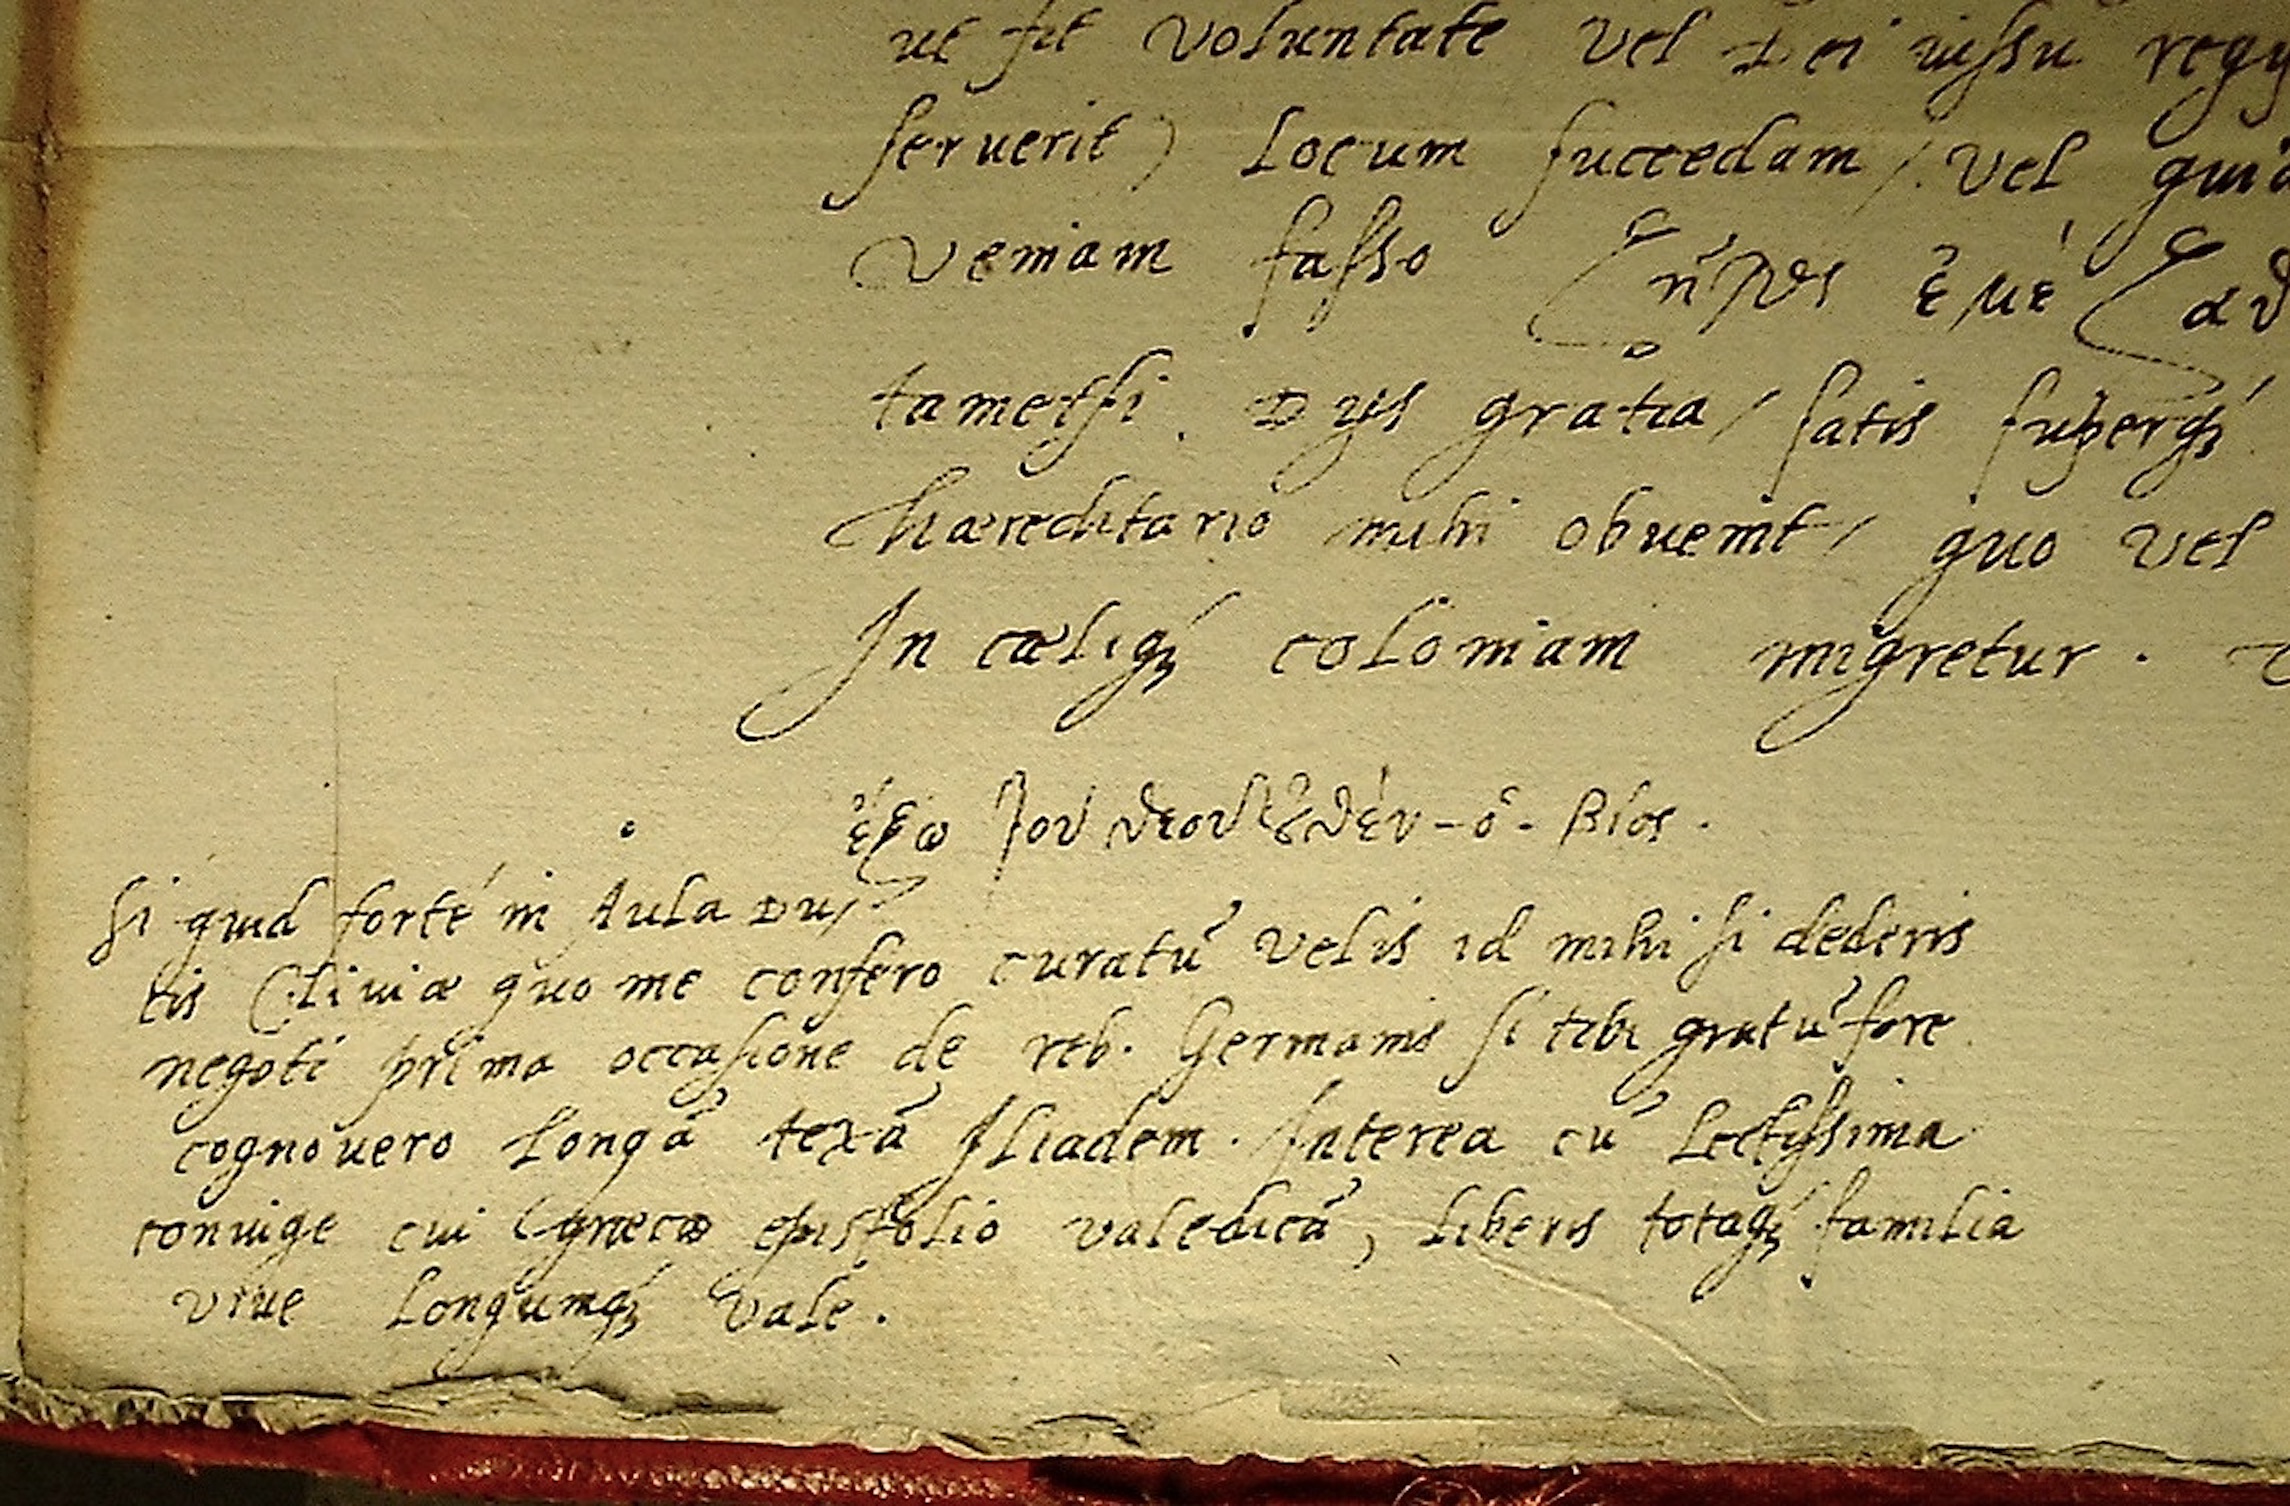 ut fit voluntate vel Dei iussu
seruerit) locum succedam / vel
veniam fasso ἐμὲ
tametsi. Dijs gratia / satis superq́ʒ
hæreditario mihi obuenit / quo vel
In cæliq́ʒ coloniam migretur.
ἔξω τοῦ θεοῦ οὐδέν - ὁ - βίος.
Si quid forté in Aula Du/
cis Cliuiæ quo me confero curatũ velis id mihi si dederis
negotĩ prima occasione de reb. Germanis si tibi gratũ fore
cognouero longã texã Iliadem. Interea cũ lectissima
coniuige cui Græco epistolio valedicã, liberis totaq́ʒ familia
viue longumq́ʒ vale.